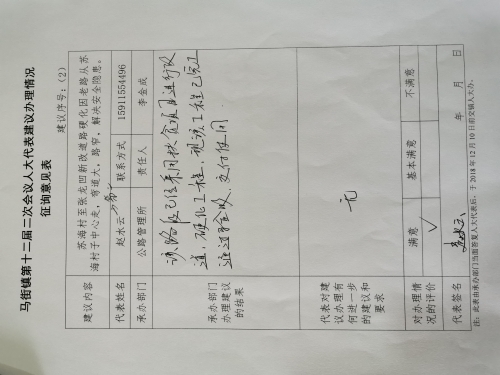 马街镇第十二届二次会议人大代表建议办理情况
征询意见表
建议序号：（2）
建议内容
苏海村至张龙凹新改道路硬化因老路从苏
海村子中心走，弯道大，路窄，解决安全隐患。
代表姓名 赵水云 联系方式 15911554496
承办部门 公路管理所 责任人 李金成
承办部门
办理建议
的结果
该路段已经采用扶贫项目进行改
道，硬化工程，现该工程已完工
通过验收，交付使用
代表对建
议办理有
何进一步
的建议和
要求
无
对办理情
况的评价
满意 基本满意 不满意
√
代表签名 赵水云 年 月 日
注：此表由承办部门当面答复人大代表后，于2018年12月10日前交镇人大办。